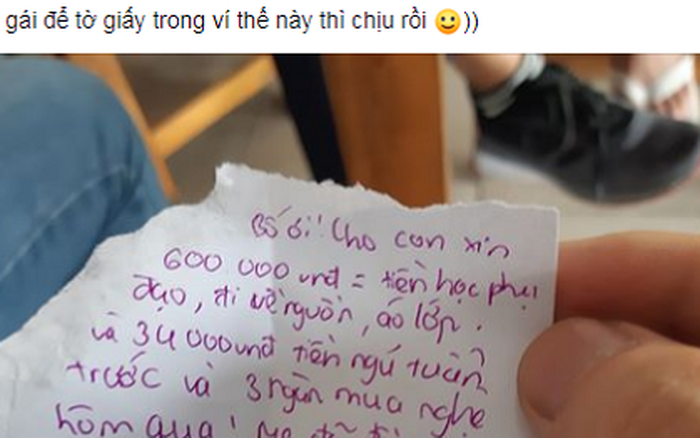 gái để tờ giấy trong ví thế này thì chịu rồi 🙂))
Bố ơi!! Cho con xin
600 000 vnđ = tiền học phụ
đạo, đi về nguồn, áo lớp.
và 34 000 vnđ tiền ngủ tuần
trước và 3 ngàn mua nghệ
hôm qua!